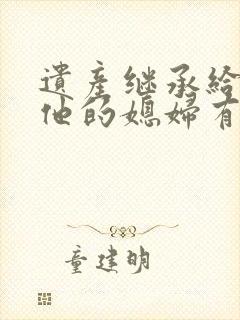 遺產继承給
他的媳婦有
童建明